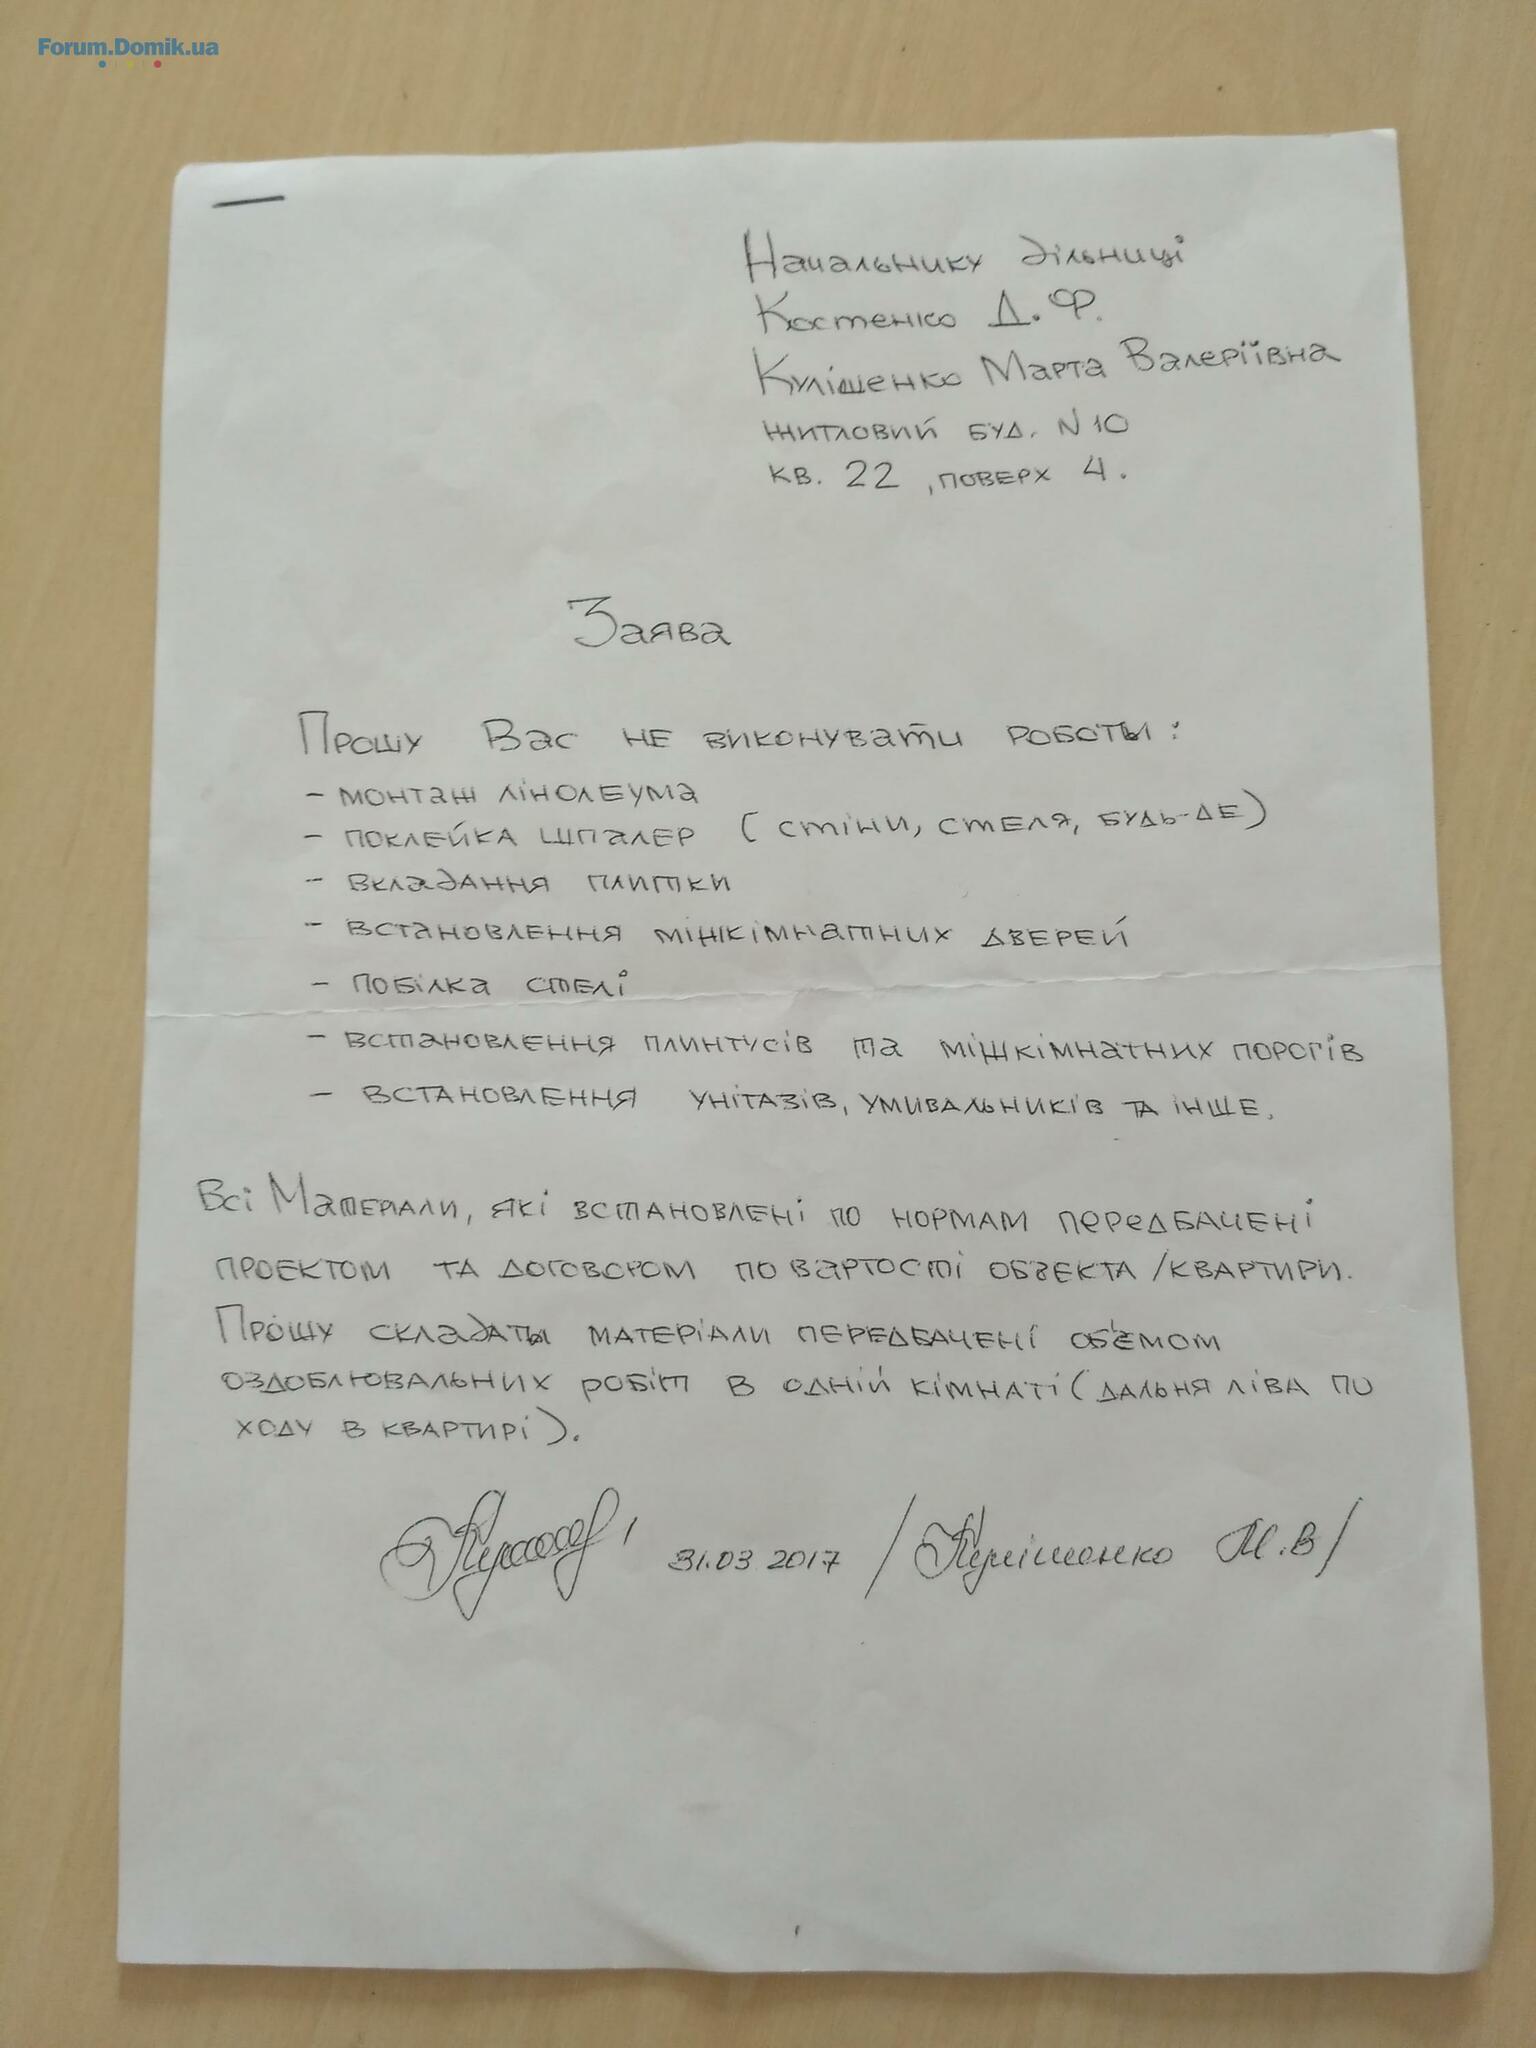 Forum.Domik.ua
Начальнику дільниці
Костенко Д.Ф.
Кулішенко Марта Валеріївна
житловий буд. N 10
кв. 22, поверх 4.
Заява
Прошу Вас не виконувати роботы:
- монтаж лінолеума
- поклейка шпалер (стіни, стеля, будь-де)
- вкладання плитки
- встановлення міжкімнатних дверей
- побілка стелі
- встановлення плинтусів та міжкімнатних порогів
- встановлення унітазів, умивальників та інше.
Всі Материали, які встановлені по нормам передбачені
проектом та договором по вартості обʼекта /квартири.
Прошу складаты матеріали передбачені обʼемом
оздоблювальних робіт в одній кімнаті (дальня ліва по
ходу в квартирі).
31.03.2017 /Кулішенко М.В/